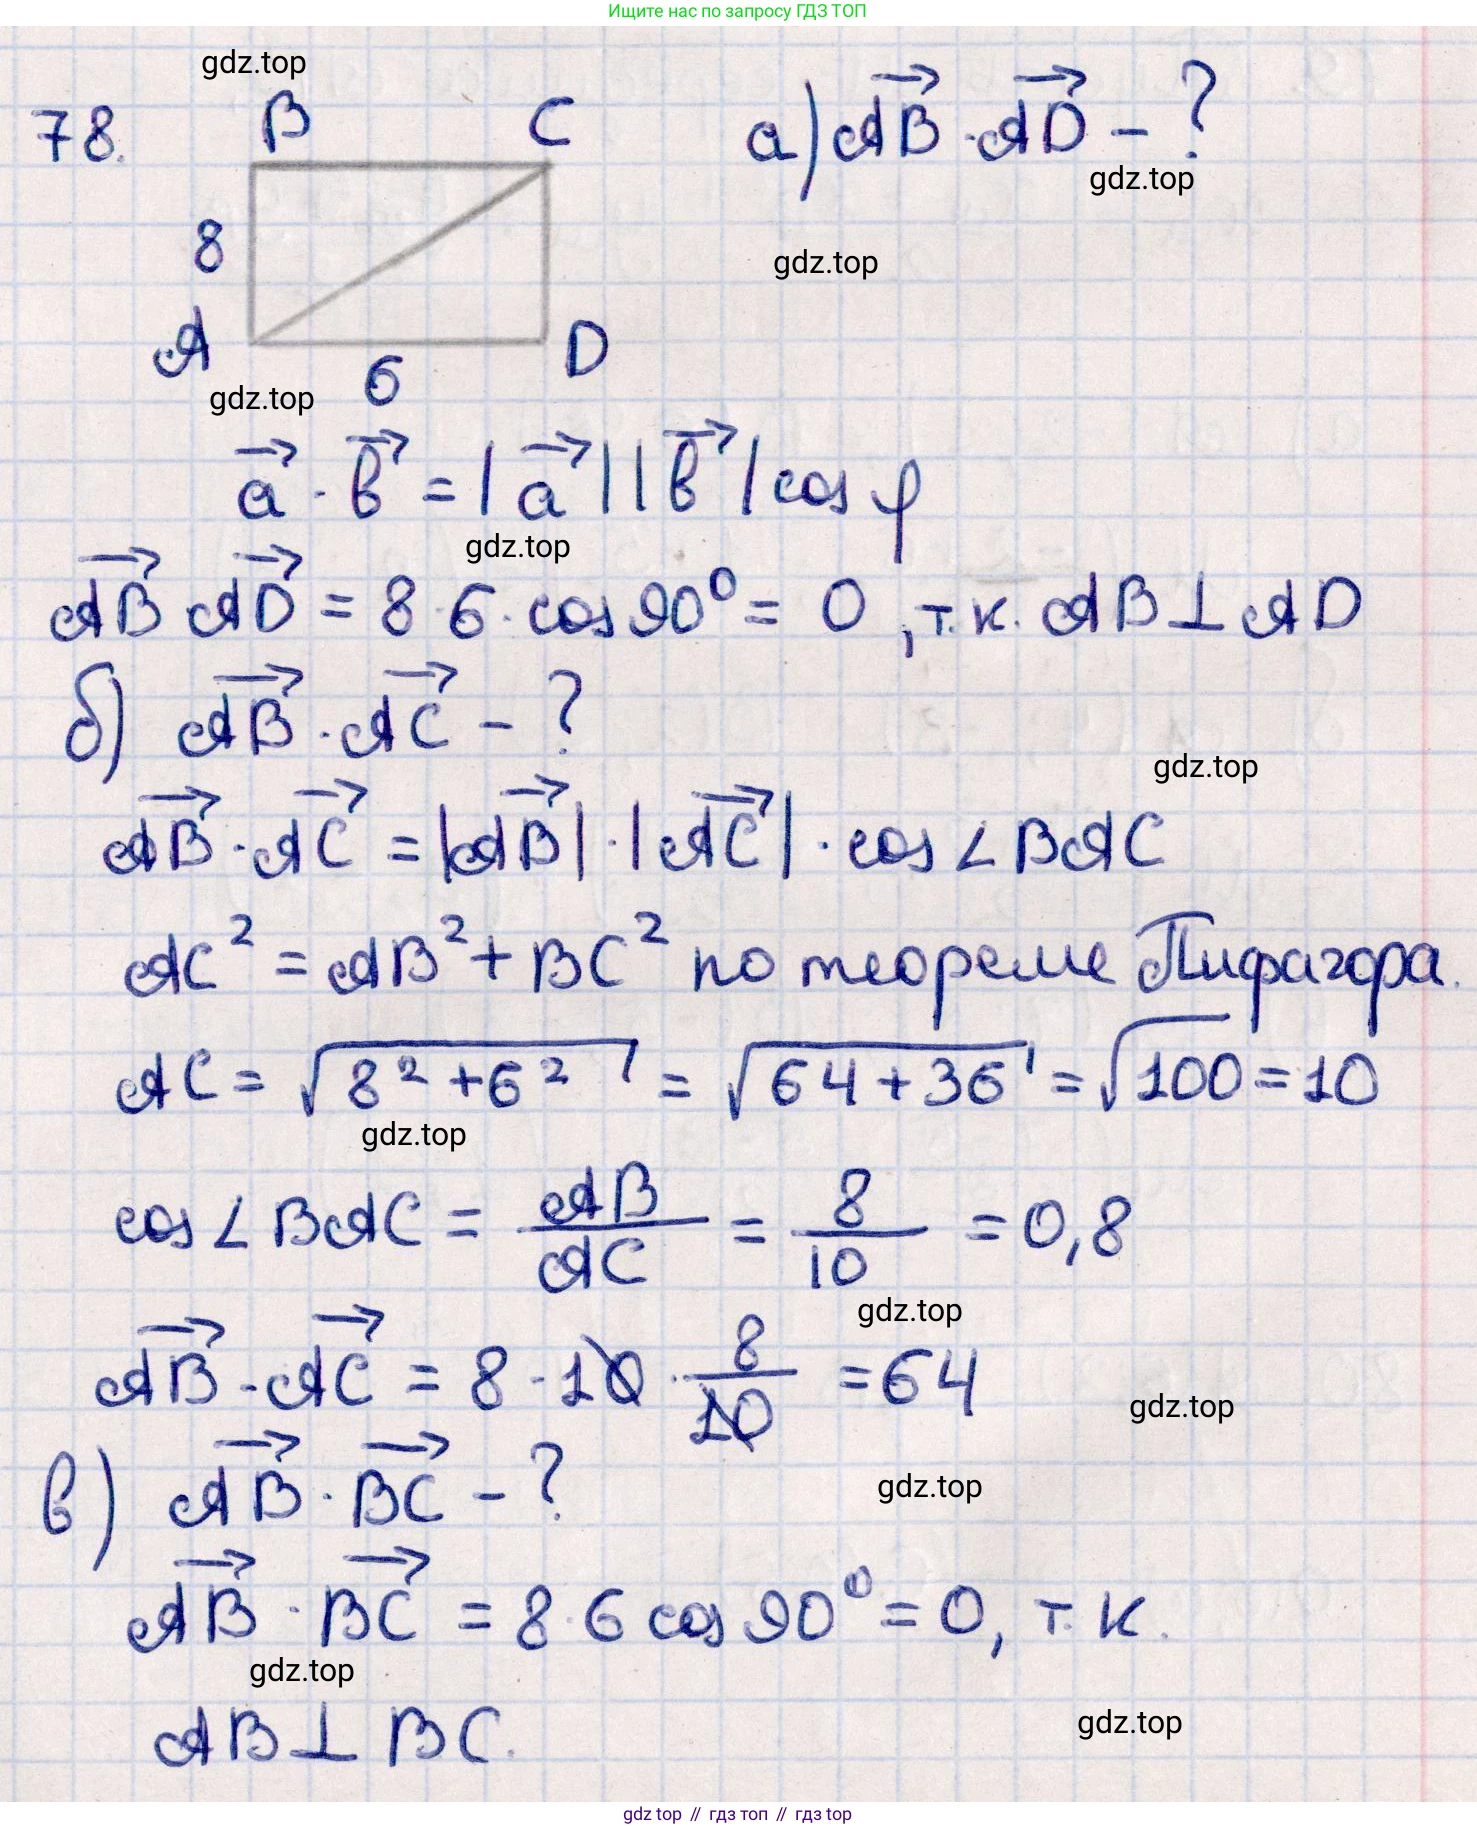 Ищите нас по запросу ГДЗ ТОП
gdz.top
78.
B C
a) AB · AD - ?
gdz.top
8
gdz.top
A D
6
gdz.top
a · b = |a||b| cos φ
gdz.top
AB · AD = 8 · 6 · cos 90° = 0, т.к. AB ⊥ AD
б) AB · AC - ?
gdz.top
AB · AC = |AB| · |AC| · cos ∠ BAC
AC² = AB² + BC² по теореме Пифагора.
AC = √(8² + 6²) = √(64 + 36) = √100 = 10
gdz.top
cos ∠ BAC = AB/AC = 8/10 = 0,8
gdz.top
AB · AC = 8 · 10 · 8/10 = 64
gdz.top
в) AB · BC - ?
gdz.top
AB · BC = 8 · 6 cos 90° = 0, т.к.
gdz.top
AB ⊥ BC.
gdz.top
gdz top // гдз топ // гдз top